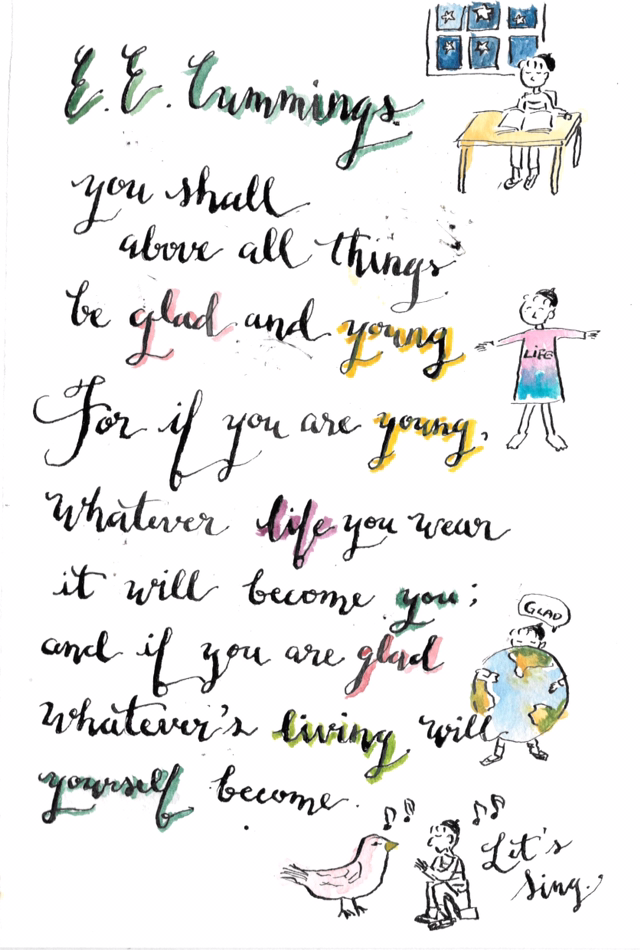 E. E. Cummings
you shall
above all things
be glad and young
LIFE
For if you are young,
whatever life you wear
it will become you;
GLAD
and if you are glad
whatever's living will
yourself become.
Let's
sing.